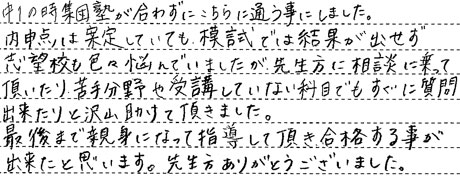 中1の時集団塾が合わずにこちらに通う事にしました。
内申点は安定していても、模試では結果が出せず
志望校も色々悩んでいましたが、先生方に相談に乗って
頂いたり、苦手分野や受講していない科目でもすぐに質問
出来たりと沢山助けて頂きました。
最後まで親身になって指導して頂き合格する事が
出来たと思います。先生方ありがとうございました。